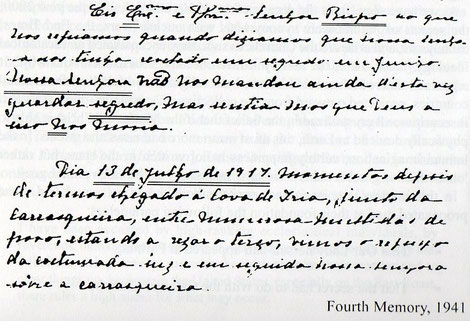 Eis Ex.mo e Rev.mo Senhor Bispo ao que
nos referiamos quando diziamos que Nossa Senho-
ra nos tinha revelado um segredo em Junho.
Nossa Senhora não nos mandou ainda desta vez
guardar segredo, mas sentiamos que Deus a
isso nos movia.
Dia 13 de Julho de 1917. Momentos depois
de termos chegado á Cova de Iria, junto da
carrasqueira, entre numerosa multidão de
povo, estando a rezar o terço, vimos o reflexo
da costumada luz e em seguida Nossa Senhora
sôbre a carrasqueira.
Fourth Memory, 1941